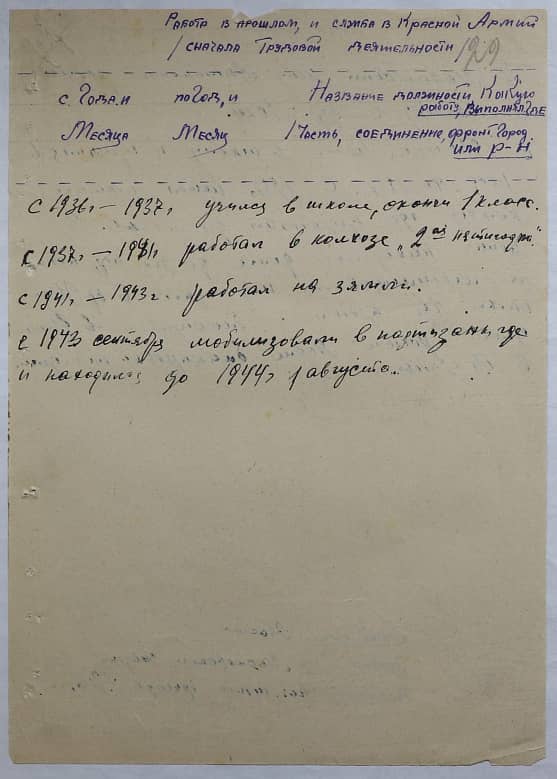 Работа в прошлом, и служба в Красной Армий
/сначала Трудовой деятельности/ 29
с Года, и по Год, и Название должности Какую
работу, выполнял где
Месяца Месяц Часть, соединение, фронт город
или р-н
С 1936г – 1937г учился в школе, окончи 1 класс.
с 1937г – 1941г работал в колхозе „2ая пятилетка"
с 1941г – 1943г. работал на земли.
с 1943 сентября мобилизовали в партизаны где
и находился до 1944г 1 августа.